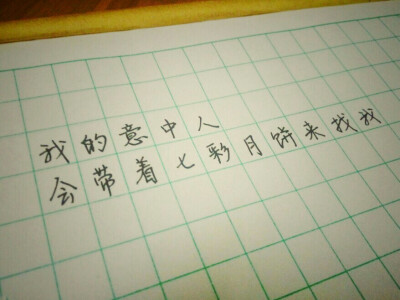 我的意中人
会带着七彩月饼来找我